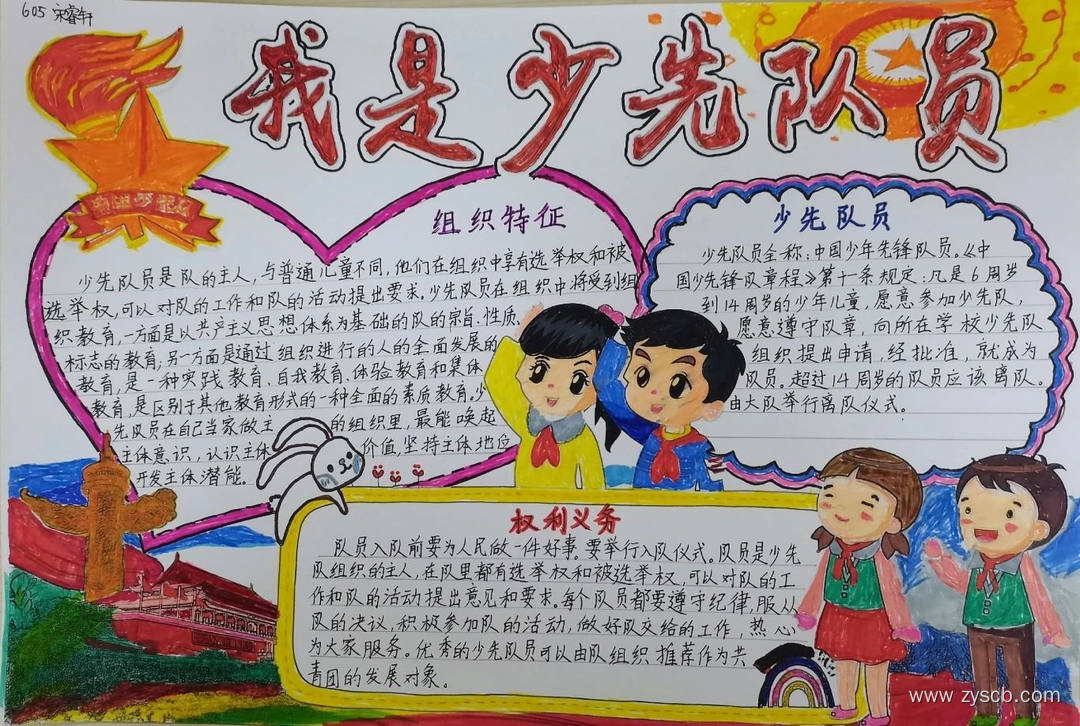 605 宋睿轩
我是少先队员
组织特征
少先队员是队的主人,与普通儿童不同,他们在组织中享有选举权和被
选举权,可以对队的工作和队的活动提出要求。少先队员在组织中将受到组
织教育,一方面是以共产主义思想体系为基础的队的宗旨、性质、
标志的教育;另一方面是通过组织进行的人的全面发展的
教育,是一种实践教育、自我教育、体验教育和集体
教育,是区别于其他教育形式的一种全面的素质教育。少
先队员在自己当家做主的组织里,最能唤起
主体意识,认识主体价值,坚持主体地位
开发主体潜能。
少先队员
少先队员全称:中国少年先锋队员。《中
国少先锋队章程》第十条规定:凡是6周岁
到14周岁的少年儿童,愿意参加少先队,
愿意遵守队章,向所在学校少先队
组织提出申请,经批准,就成为
队员。超过14周岁的队员应该离队。
由大队举行离队仪式。
权利义务
队员入队前要为人民做一件好事。要举行入队仪式。队员是少先
队组织的主人,在队里都有选举权和被选举权,可以对队的工
作和队的活动提出意见和要求。每个队员都要遵守纪律,服从
队的决议,积极参加队的活动,做好队交给的工作,热心
为大家服务。优秀的少先队员可以由队组织推荐作为共
青团的发展对象。
www.zyscb.com